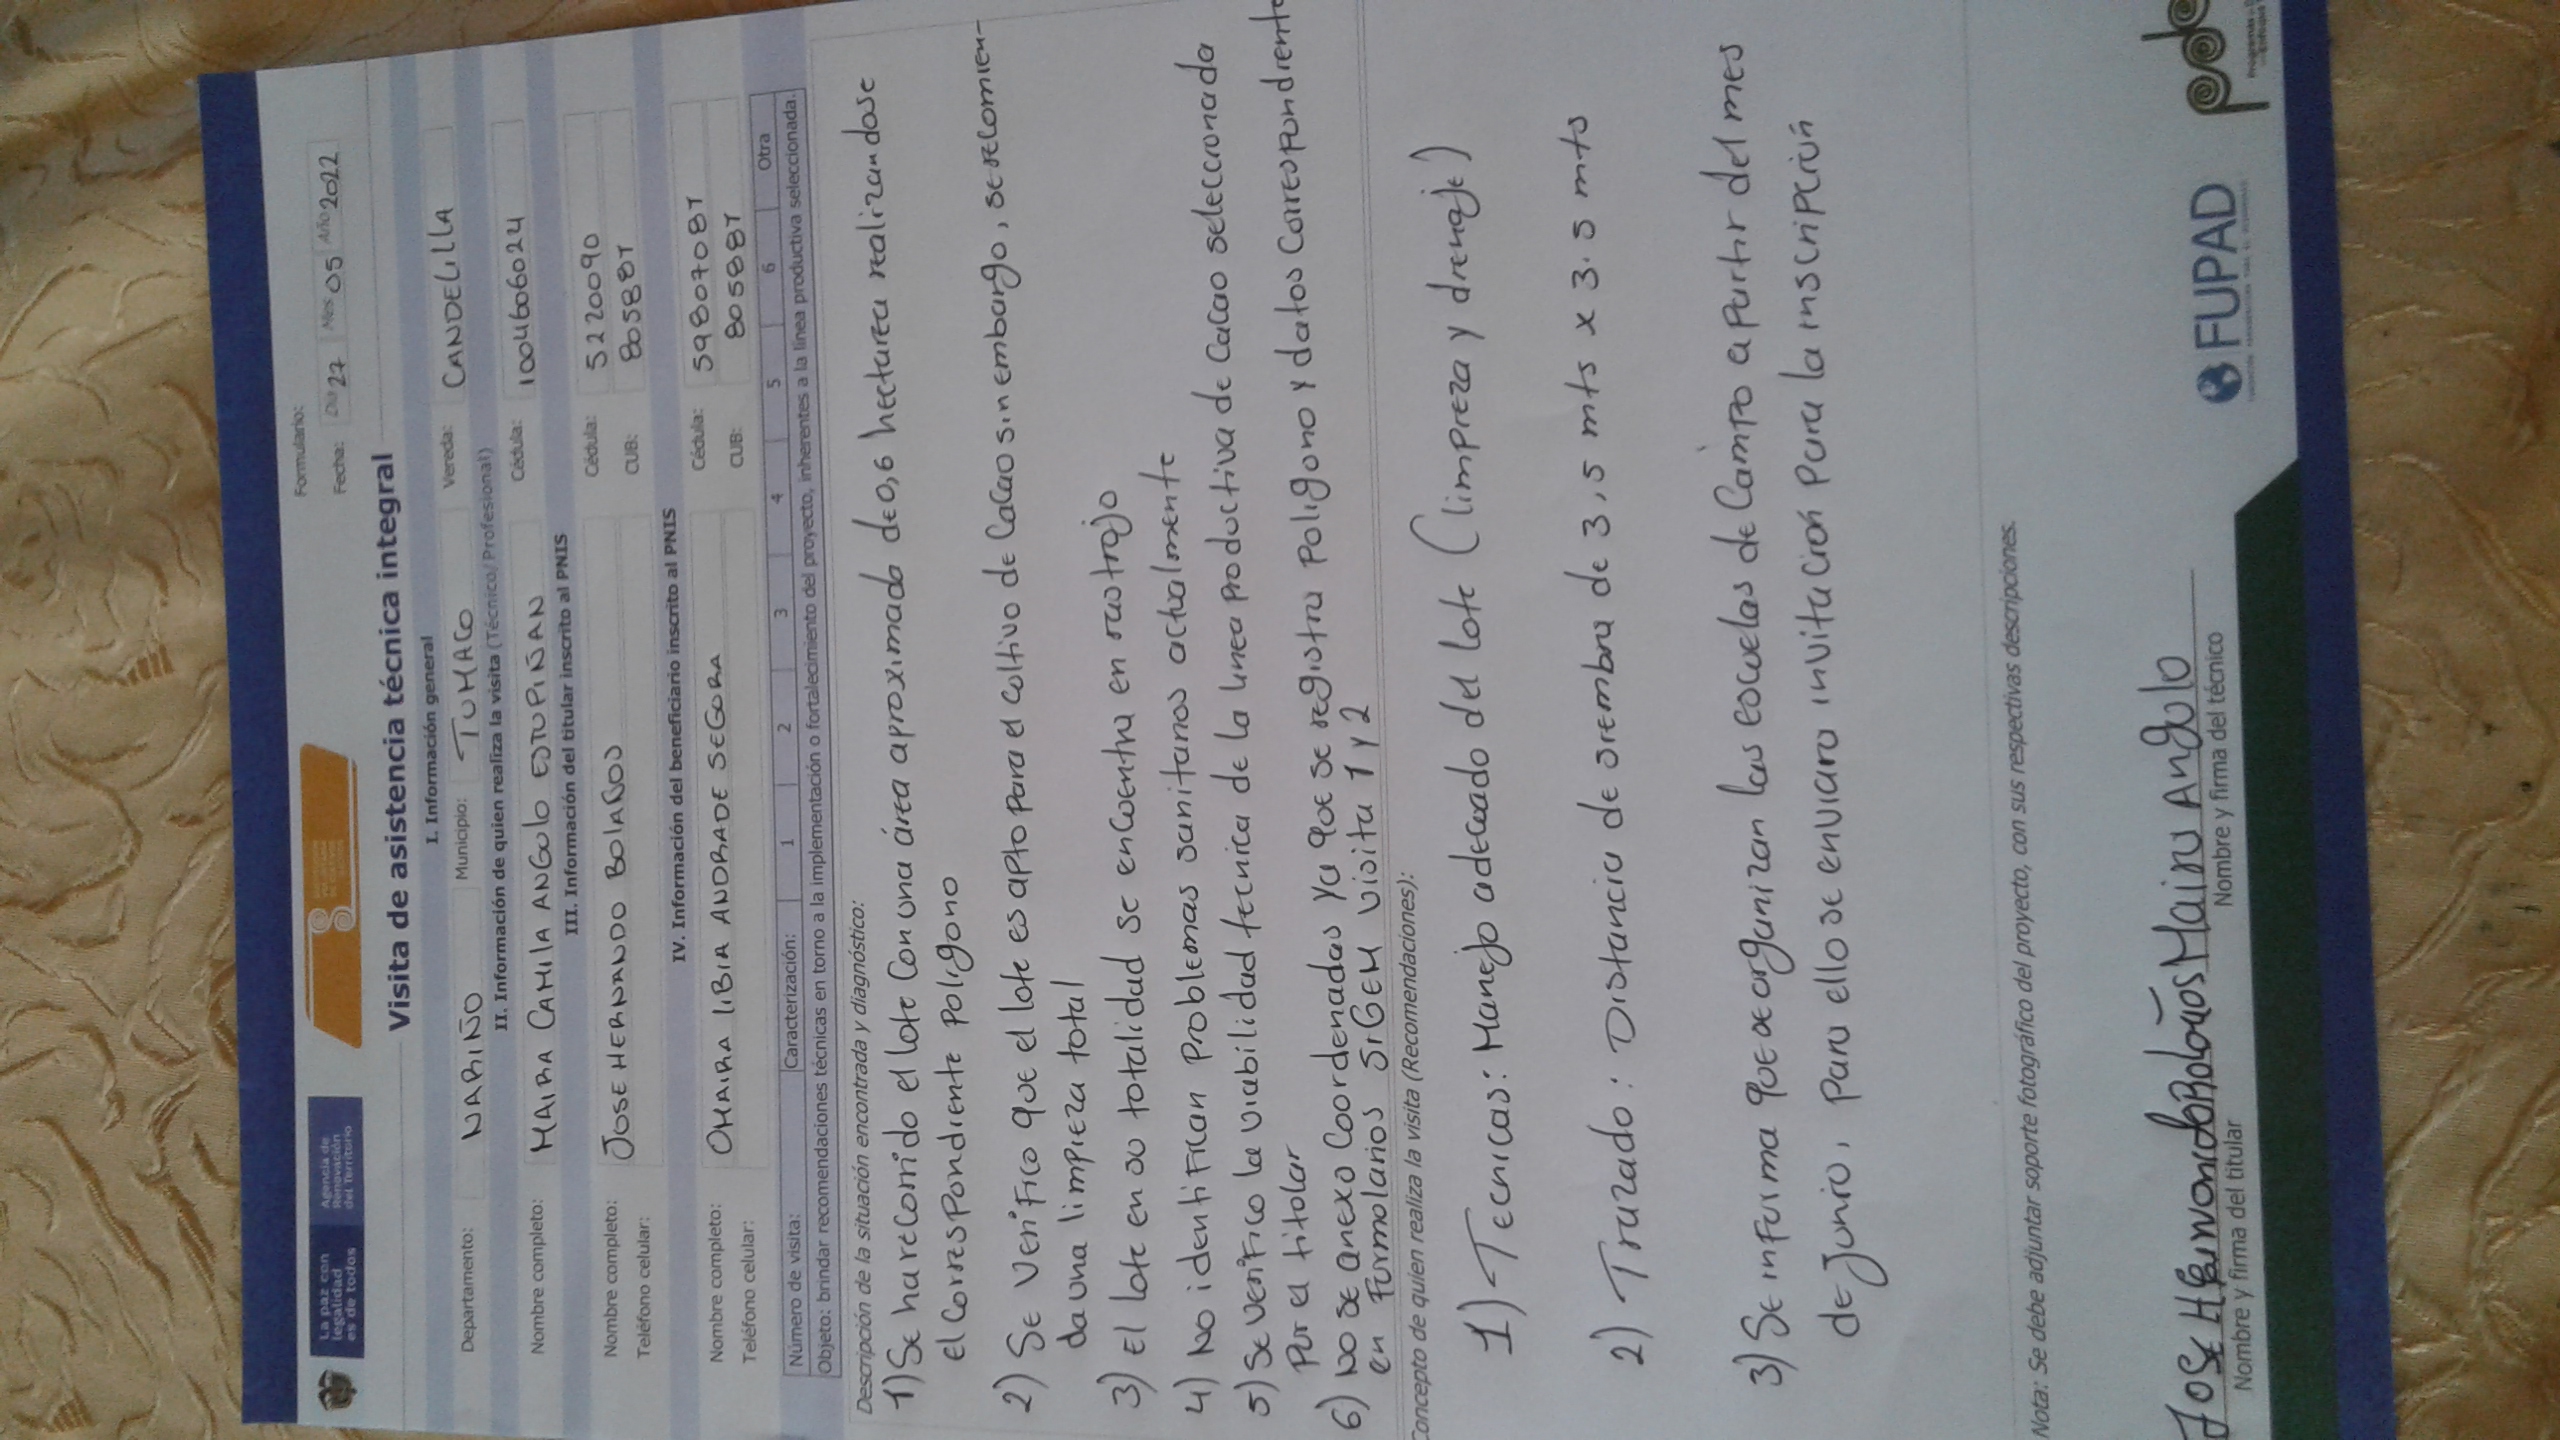 La paz con
legalidad
es de todos
Agencia de
Renovación
del Territorio
Formulario:
Fecha: Día 27 Mes 05 Año 2022
Visita de asistencia técnica integral
I. Información general
Departamento: NARIÑO Municipio: TUMACO Vereda: CANDELILLA
II. Información de quien realiza la visita (Técnico/Profesional)
Nombre completo: MAIRA CAMILA ANGULO ESTUPIÑAN Cédula: 1004606024
III. Información del titular inscrito al PNIS
Nombre completo: JOSE HERNANDO BOLAÑOS Cédula: 5220090
Teléfono celular: CUB: 80588T
IV. Información del beneficiario inscrito al PNIS
Nombre completo: OMAIRA LIBIA ANDRADE SEGORA Cédula: 5980708T
Teléfono celular: CUB: 80588T
Número de visita: Caracterización: 1 2 3 4 5 6 Otra
Objeto: brindar recomendaciones técnicas en torno a la implementación o fortalecimiento del proyecto, inherentes a la línea productiva seleccionada.
Descripción de la situación encontrada y diagnóstico:
1) Se ha recorrido el lote con una área aproximada de 0,6 hectarea realizandose
el correspondiente poligono
2) Se verifico que el lote es apto para el coltivo de cacao sin embargo, se recomien-
da una limpieza total
3) El lote en so totalidad se encuentra en rastrojo
4) No identifican problemas sanitarios actualmente
5) se verifico la viabilidad tecnica de la linea productiva de cacao seleccionada
por el titolar
6) No se anexo coordenadas ya que se registra poligono y datos correspondiente
en formolarios SIGEM visita 1 y 2
Concepto de quien realiza la visita (Recomendaciones):
1) Tecnicas: Manejo adecuado del lote (limpieza y drenaje)
2) Trazado: Distancia de siembra de 3,5 mts x 3.5 mts
3) Se informa que se organizan las escuelas de campo a partir del mes
de Junio, para ello se enviara invitación para la inscripción
Nota: Se debe adjuntar soporte fotográfico del proyecto, con sus respectivas descripciones.
Jose Hernando Bolaños Maira Angulo
Nombre y firma del titular Nombre y firma del técnico
FUPAD